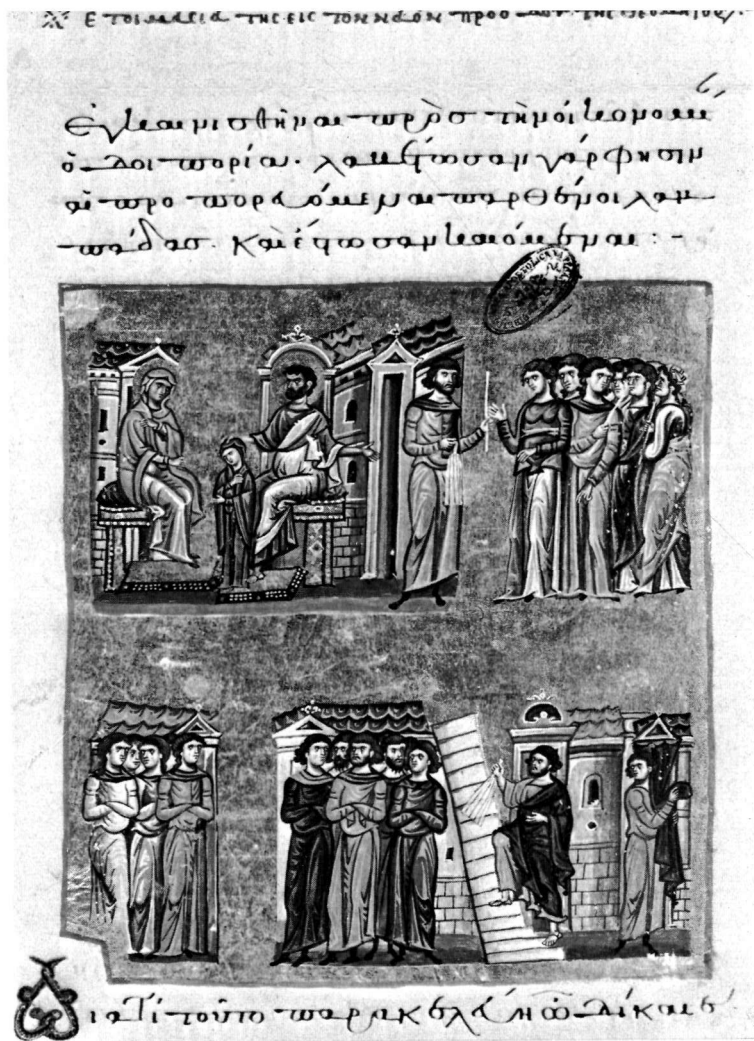 Ἑτοιμασία τῆς εἰς τὸν ναὸν προόδου τῆς Θεομήτορος
Ἐγκαινισθῆναι πρὸς τὴν
ὁδοιπορίαν. λαβέτωσαν γάρ φησιν
αἱ προπορευόμεναι παρθένοι λαμ
πάδας. καὶ ἔστωσαν καιόμεναι :-
Διατί τοῦτο παρακελεύῃ ὦ δίκαιε